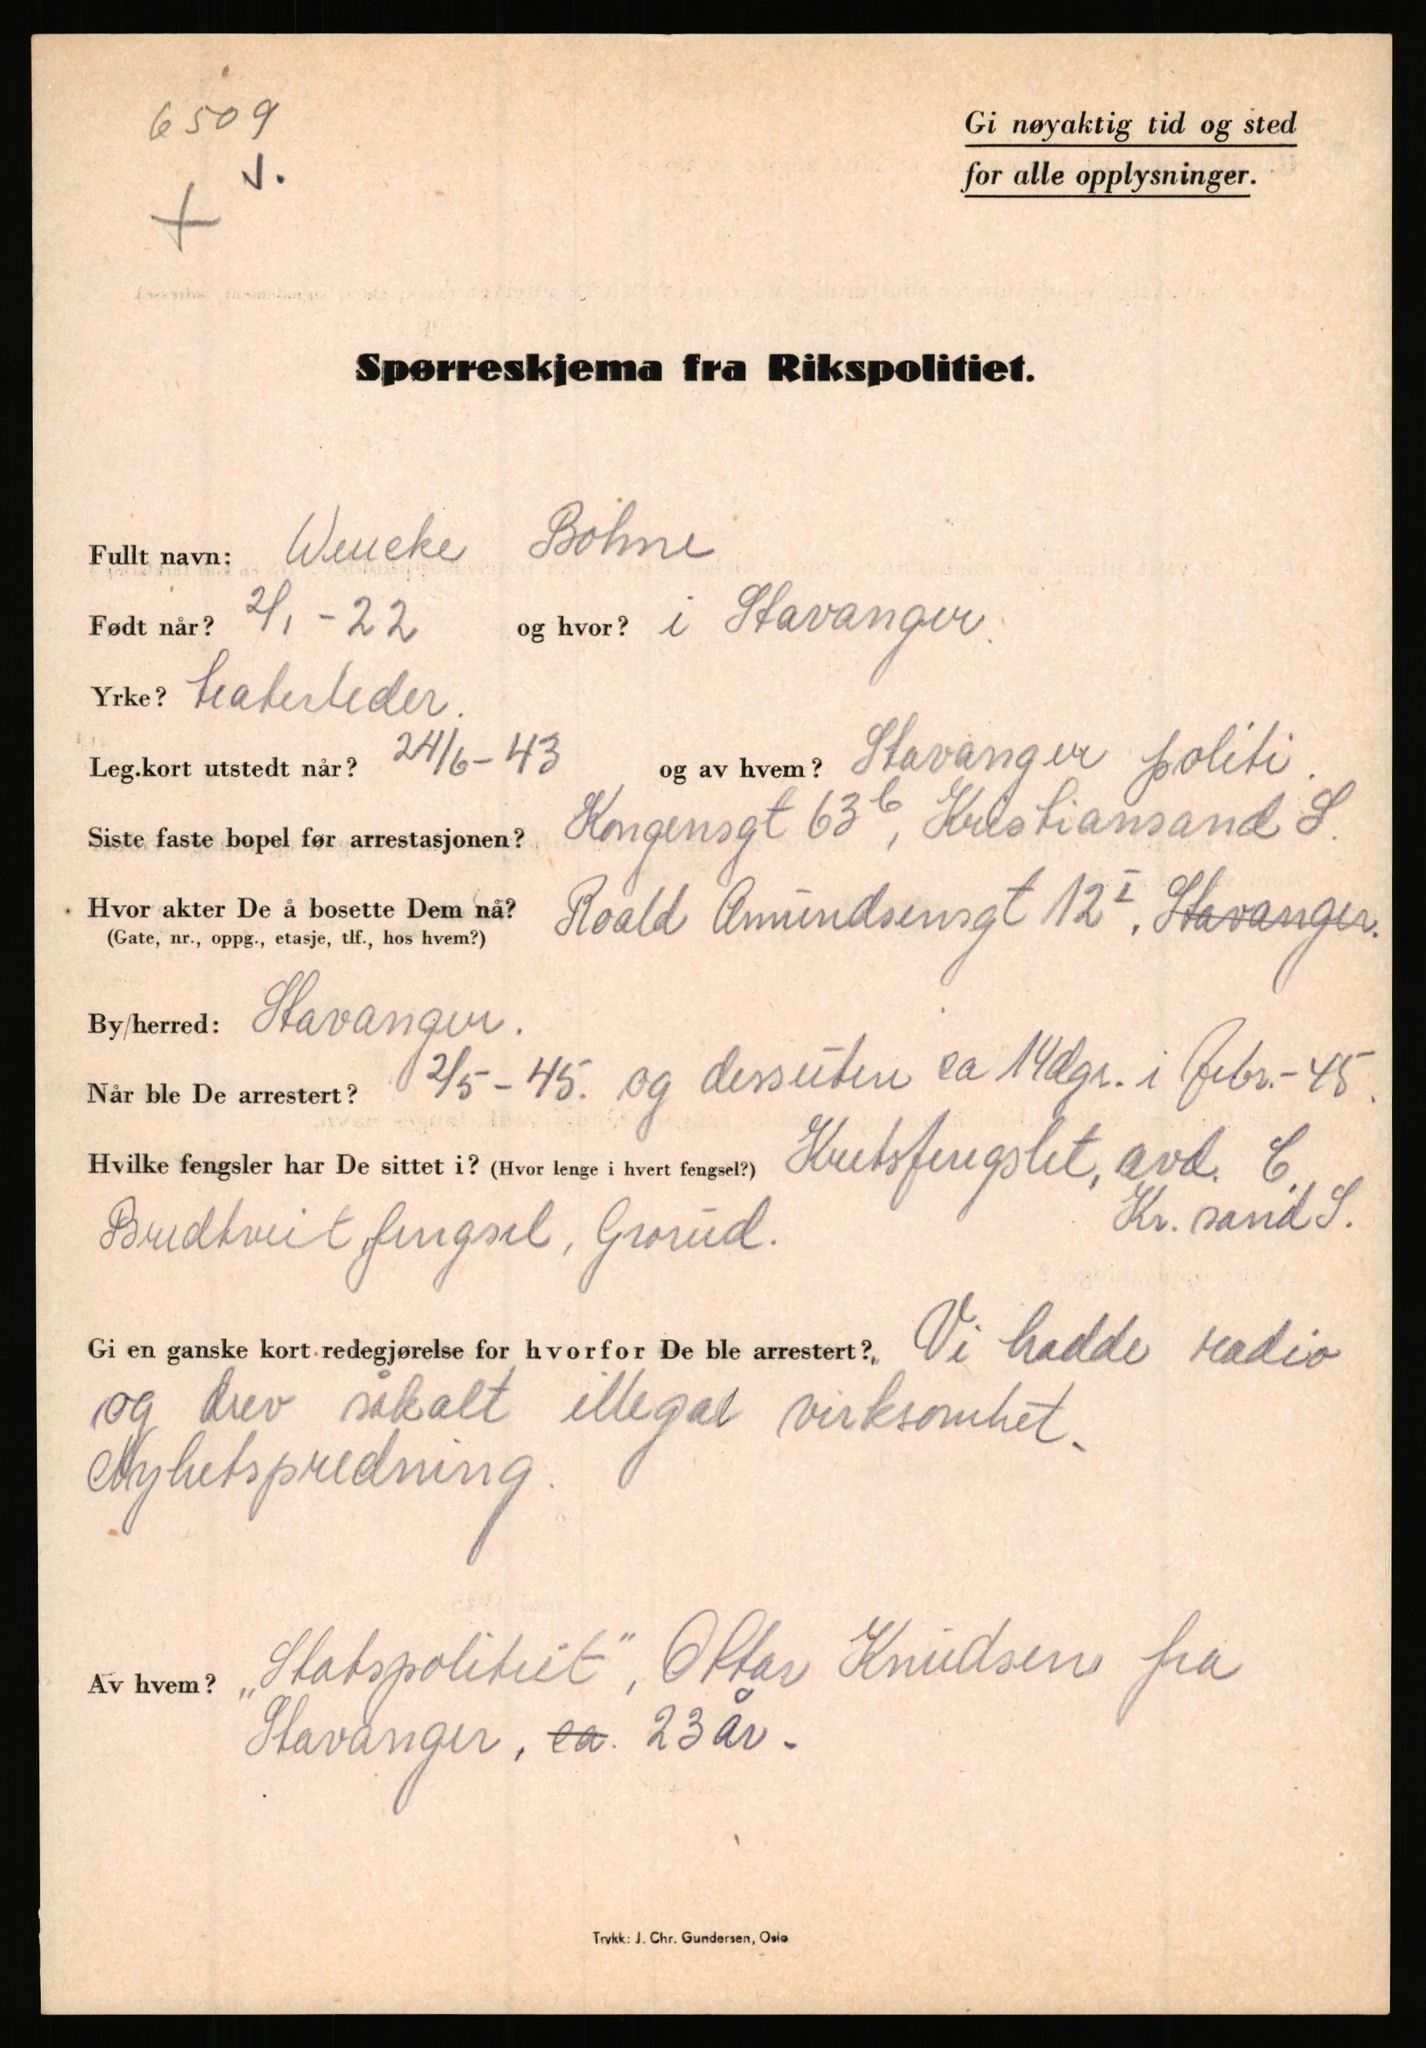 6509
Gi nøyaktig tid og sted
for alle opplysninger.
Spørreskjema fra Rikspolitiet.
Fullt navn: Wencke Bohne
Født når? 2/1 - 22 og hvor? i Stavanger.
Yrke? teaterleder.
Leg.kort utstedt når? 24/6 - 43 og av hvem? Stavanger politi.
Siste faste bopel før arrestasjonen? Kongensgt 63 b, Kristiansand S.
Hvor akter De å bosette Dem nå? Roald Amundsensgt 12 I, Stavanger.
(Gate, nr., oppg., etasje, tlf., hos hvem?)
By/herred: Stavanger.
Når ble De arrestert? 2/5 - 45. og dessuten ca 14 dgr. i febr. - 45.
Hvilke fengsler har De sittet i? (Hvor lenge i hvert fengsel?) Kretsfengslet, avd. C,
Kr. sand S.
Bredtveit fengsel, Grorud.
Gi en ganske kort redegjørelse for hvorfor De ble arrestert? Vi hadde radio
og drev såkalt illegal virksomhet.
Nyhetspredning.
Av hvem? „Statspolitiet", Ottar Knudsen fra
Stavanger, ca. 23 år.
Trykk: J. Chr. Gundersen, Oslo